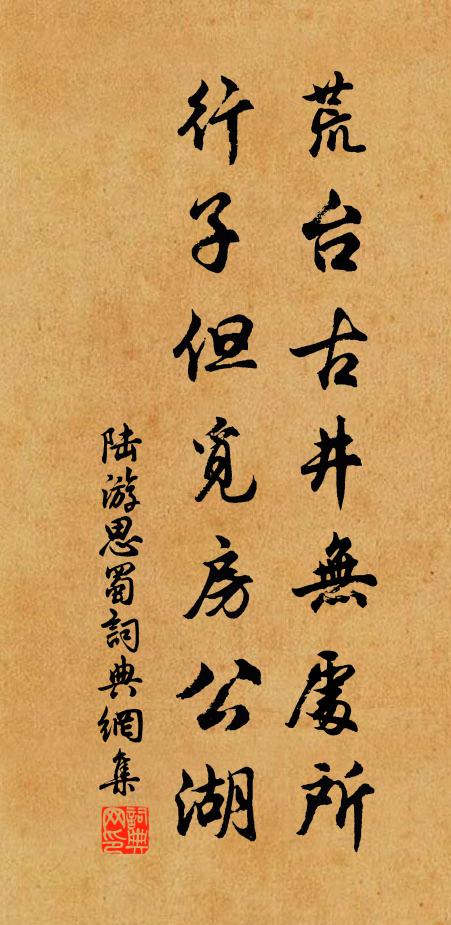 荒台古井無處所
行子但覓房公湖
陆游思蜀詞典網集
詞典
网印